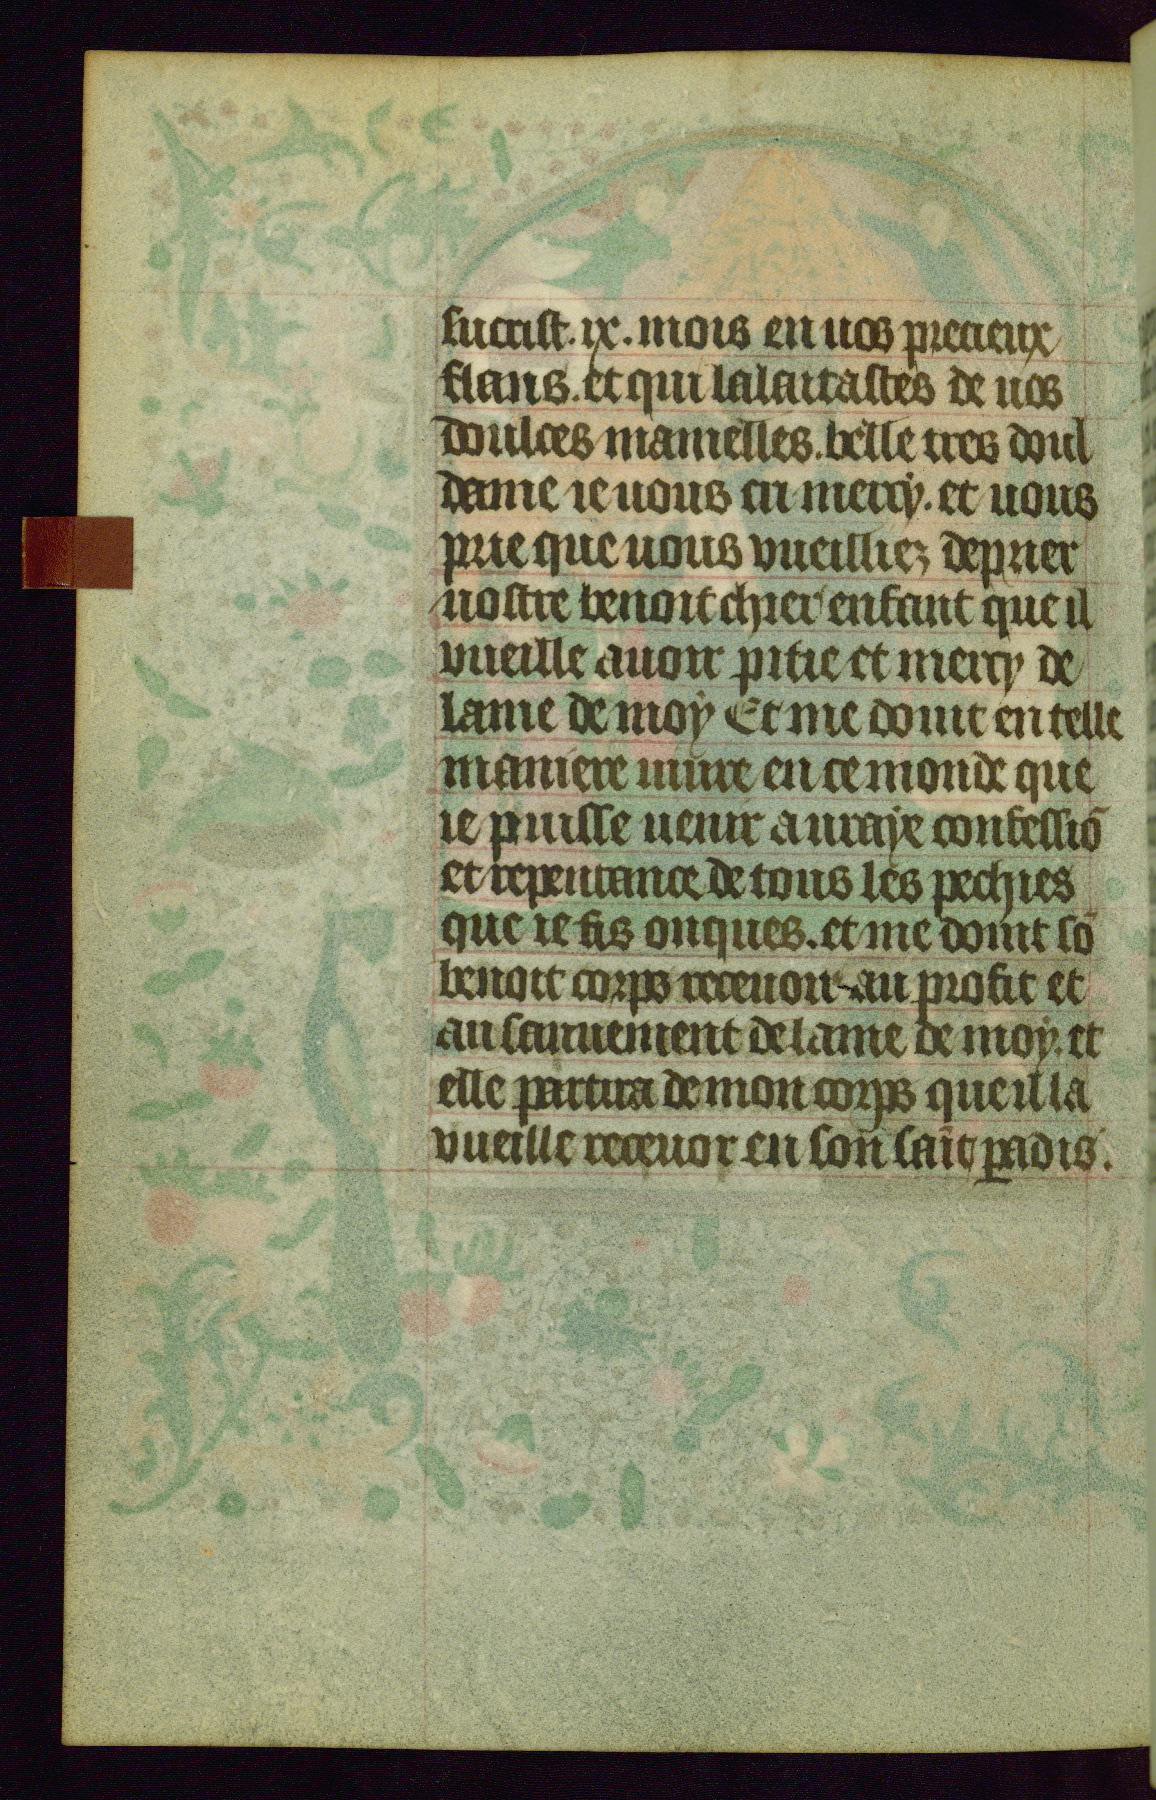 sucrist. ix. mois en uos precieux
flans. et qui lalaitastes de uos
doulces mamelles. belle tres doul
dame ie uous cri mercy. et uous
prie que uous vueilliez deprier
uostre benoit chier enfant que il
vueille auoir pitie et mercy de
lame de moy Et me doint en telle
maniere uiure en ce monde que
ie puisse uenir a uraye confessiō
et repentance de tous les pechies
que ie fis onques. et me doint sō
benoit corps receuoir au profit et
au sauuement de lame de moy. et
elle partira de mon corps que il la
vueille receuor en son sait padis.